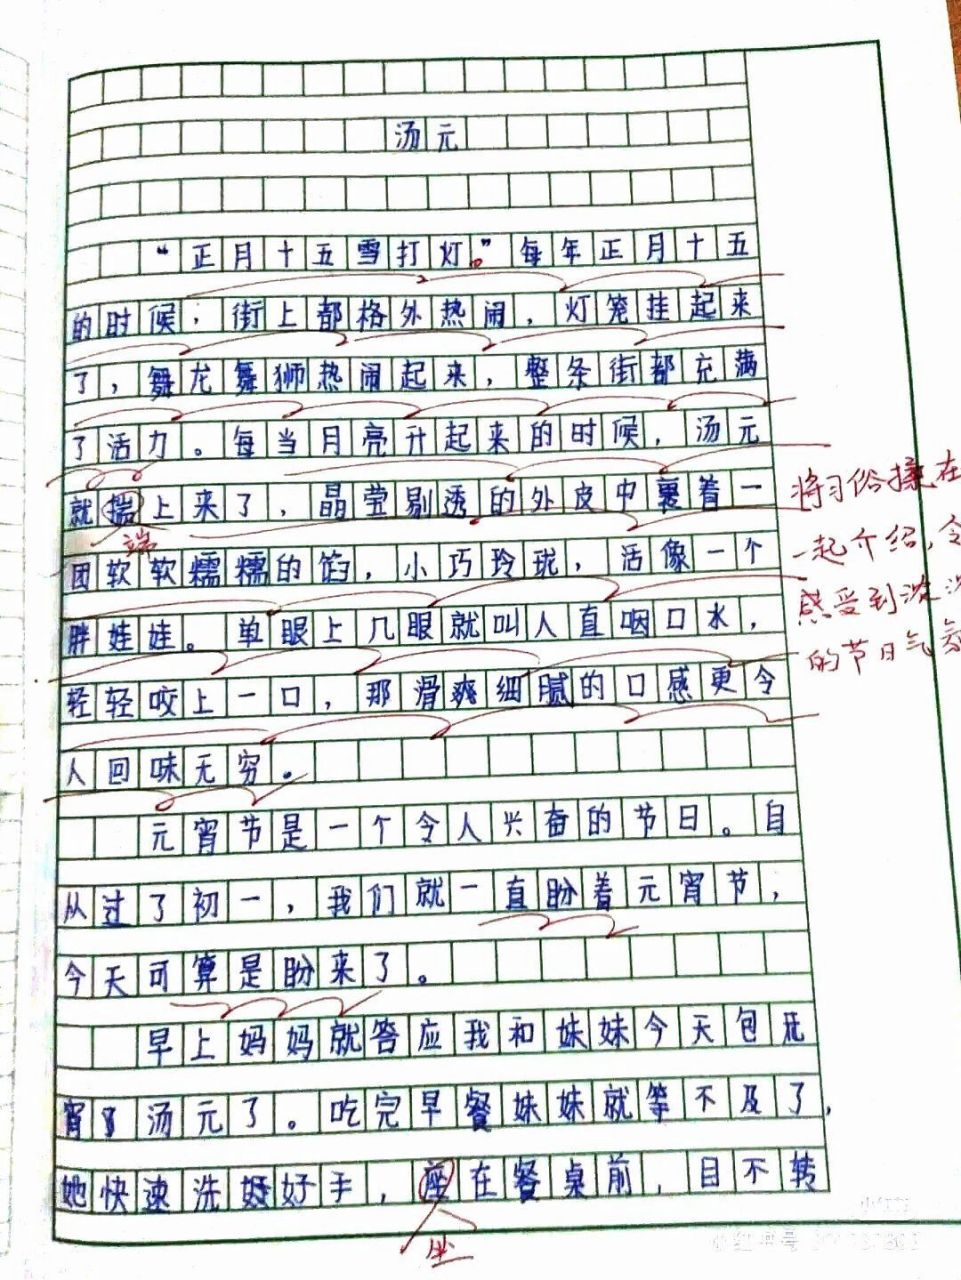 汤元
“正月十五雪打灯。”每年正月十五
的时候,街上都格外热闹,灯笼挂起来
了,舞龙舞狮热闹起来,整条街都充满
了活力。每当月亮升起来的时候,汤元
就揣上来了,晶莹剔透的外皮中裹着一
端
团软软糯糯的馅,小巧玲珑,活像一个
胖娃娃。单眼上几眼就叫人直咽口水,
轻轻咬上一口,那滑爽细腻的口感更令
人回味无穷。
将习俗揉在
一起介绍,令
感受到浓
的节日气
元宵节是一个令人兴奋的节日。自
从过了初一,我们就一直盼着元宵节,
今天可算是盼来了。
早上妈妈就答应我和妹妹今天包元
宵汤元了。吃完早餐妹妹就等不及了,
她快速洗好手,座在餐桌前,目不转
坐
小红书
小红书号